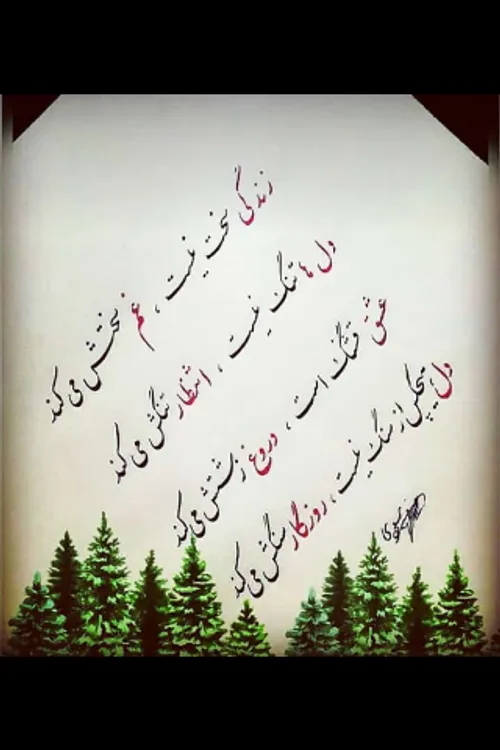 زندگی سخت نیست ، غم سختش می کند
دل ها تنگ نیست ، انتظار تنگش می کند
عشق قشنگ است ، دروغ زشتش می کند
دل هیچکس از سنگ نیست ، روزگار سنگش می کند